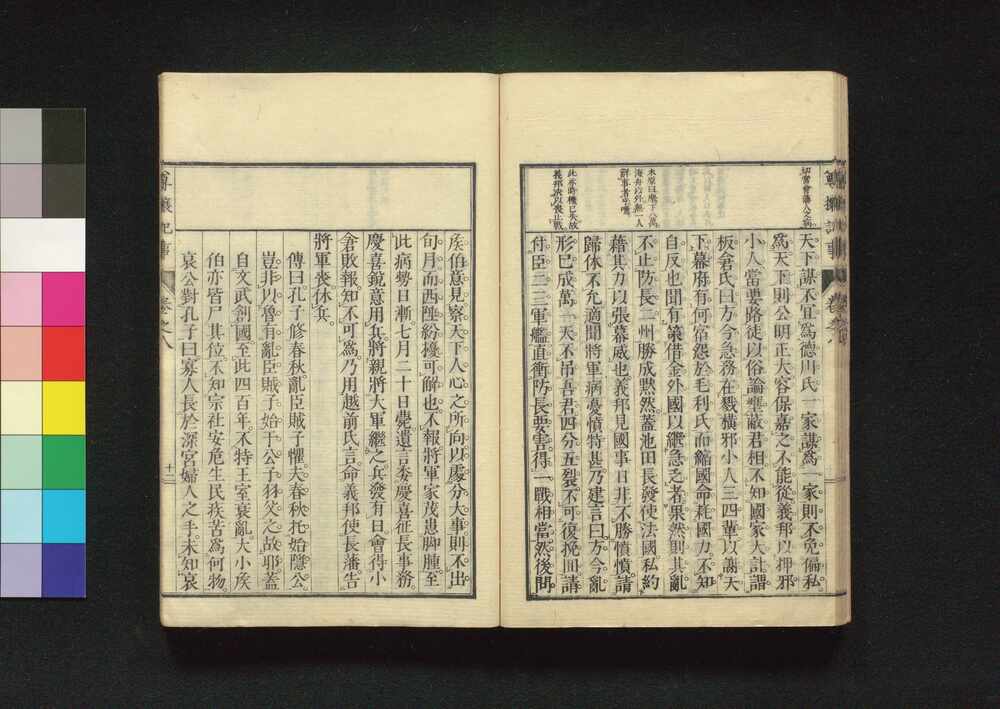 天下謀不宜爲德川氏一家謀爲一家則不免偏私
爲天下則公明正大容保嘉之不能從義邦以押邪
小人當要路徒以俗論壅蔽君相不知國家大計謂
板倉氏曰方今急務在戮橫邪小人三四輩以謝天
下幕府有何宿怨於毛利氏而縮國命耗國力不知
自反也聞有策借金外國以繼急乏者果然則其亂
不止防長二州勝成默然蓋池田長發使法國私約
藉其力以張幕威也義邦見國事日非不勝憤憤請
歸休不允適聞將軍病憂憤特甚乃建言曰方今亂
形已成萬一天不吊吾君四分五裂不可復挽回請
付臣二三軍艦直衝防長要害得一戰相當然後問
此亦時機已失故
義邦決以喪止戰
尊攘記事
卷之八
矦伯意見察天下人心之所向以處分大事則不出
旬月而西陲紛擾可解也不報將軍家茂患脚腫至
此病勢日漸七月二十日薨遺言委慶喜征長事務
慶喜鏡意用兵將親將大軍繼之兵發有日會得小
倉敗報知不可爲乃用越前氏言命義邦使長藩告
將軍喪休兵
傳曰孔子修春秋亂臣賊子懼夫春秋托始隱公
豈非以魯有亂臣賊子始于公子羽父之故耶蓋
自文武創國至此四百年不特王室衰亂大小矦
伯亦皆尸其位不知宗社安危生民疾苦爲何物
哀公對孔子曰寡人長於深宮婦人之手未知哀
尊攘記事
卷之八
十二